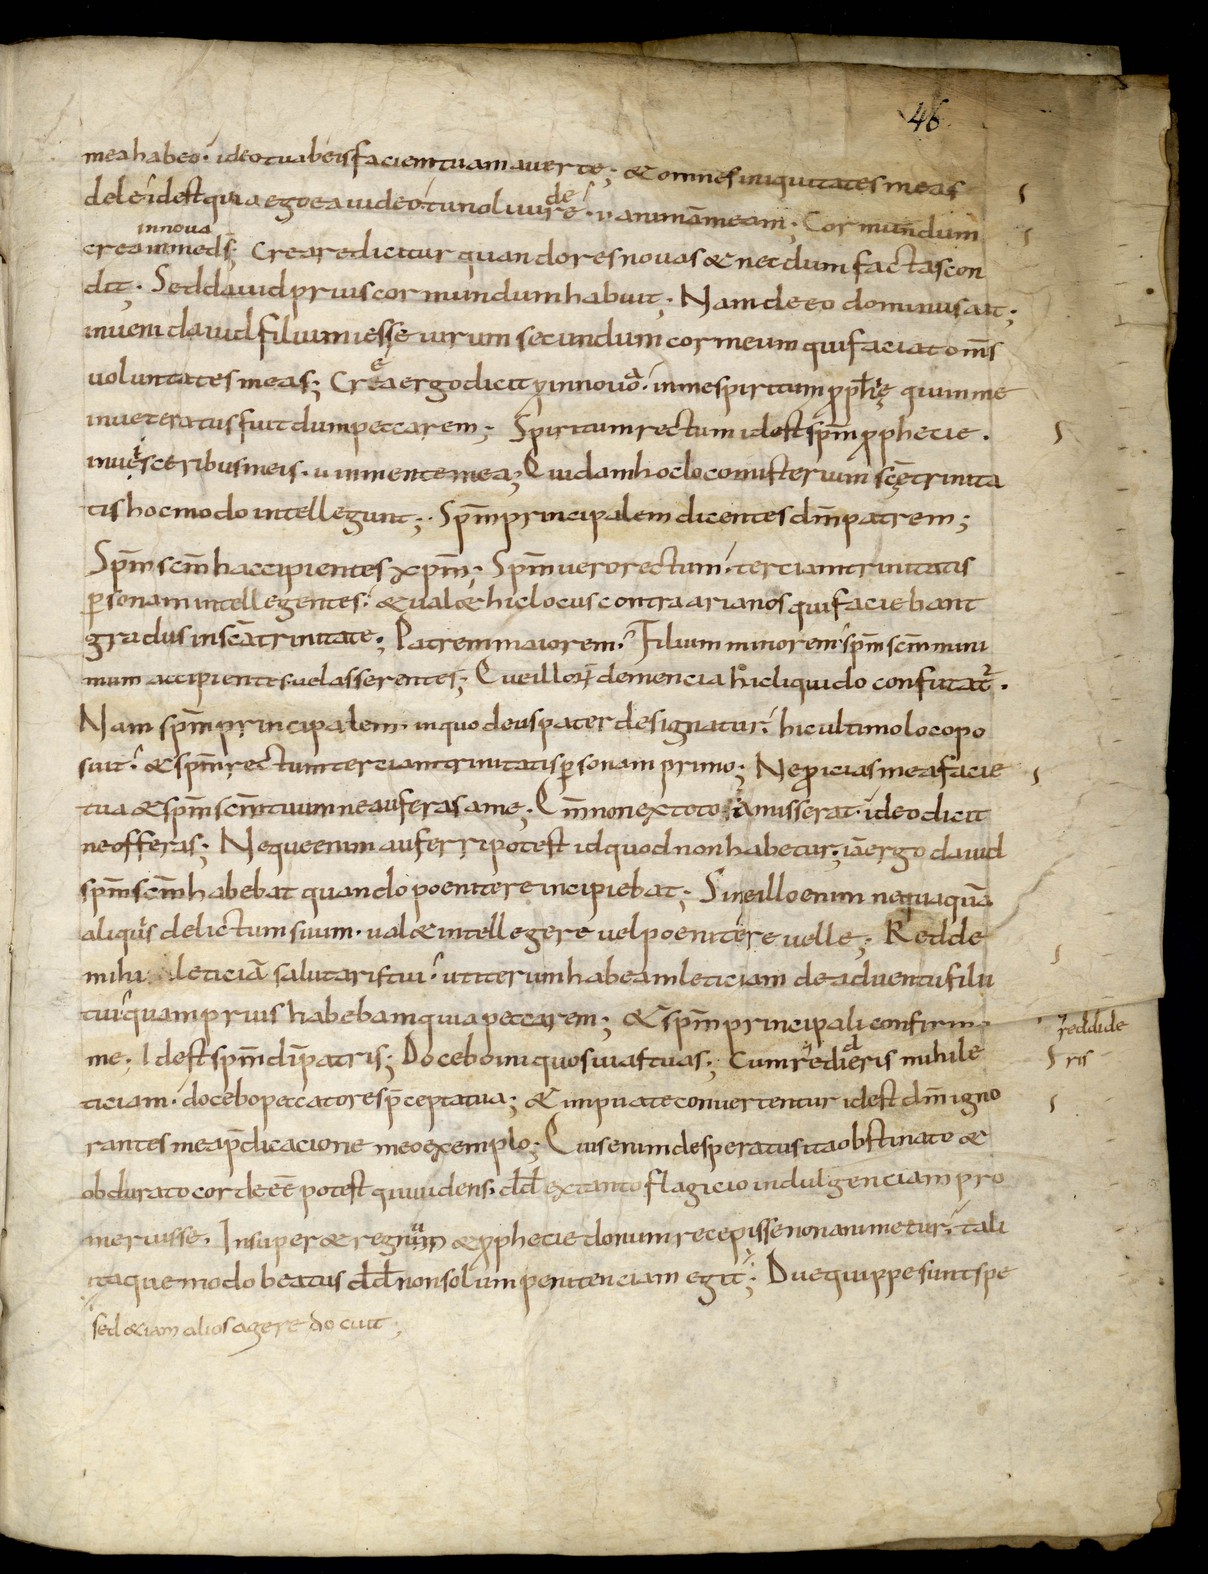 46
mea habeo. ideo tu ab eis faciem tuam auerte; & omnes iniquitates meas
dele id est quia ego ea uideo. tu noli uidere. ut animā meam; Cor mundum
innoua
crea in me ds̄; Creare dicitur quando res nouas & necdum factas con
dit; Sed dauid prius cor mundum habuit; Nam de eo dominus ait;
inueni dauid filium iesse uirum secundum cor meum qui faciat oms̄
uoluntates meas; Crea ergo dicit innoua in me spiritum ꝓph̄ię quum me
inueteratus fuit dum peccarem; Spiritum rectum id est spm̄ ꝓphecie.
in uisceribus meis. in mente mea; Quidam hoc loco misterium scę̄ trinita
tis hoc modo intellegunt; Spm̄ principalem dicentes dm̄ patrem;
Spm̄ scm̄ h accipientes xpm̄; Spm̄ uero rectum terciam trinitatis
ꝑsonam intellegentes. & ual& hic locus contra arianos qui faciebant
gradus in scā trinitate; Patrem maiorem. Filium minorem spm̄ scm̄ mini
mum accipientes uel asserentes; Que illoꝝ demencia hic liquido confutat̄.
Nam spm̄ principalem. in quo deus pater designatur. hic ultimo loco po
suit. & spm̄ rectum terciam trinitatis ꝑsonam primo; Ne ꝓicias me a facie
tua & spm̄ scm̄ tuum ne auferas a me; Qm̄ non ex toto amisserat. ideo dicit
ne offeras; Neque enim auferri potest id quod non habetur; iā ergo dauid
spm̄ scm̄ habebat quando poenitere incipiebat; Sine illo enim nequaquā
aliquis delictum suum. ual& intellegere uel poenitere uelle; Redde
mihi leticiā salutaris tui. ut iterum habeam leticiam de aduentu filii
tui quam prius habebam quia peccarem; & spm̄ principali confirma
me; Id est spm̄ dī patris; Docebo iniquos uias tuas; Cum redideris mihi le
reddide
ris
ticiam. docebo peccatores p̄cepta tua; & impii ad te conuertentur id est dm̄ igno
rantes mea p̄dicacione meo exemplo; Quis enim desperatus ita obstinato &
obdurato corde eē̄ potest qui uidens. dd̄ ex tanto flagicio indulgenciam pro
meruisse. Insuper & regnum & ꝓphecie donum recepisse non animetur. tali
itaque modo beatus dd̄ non solum penitenciam egit; Due quippe sunt spe
sed &iam alios agere docuit;